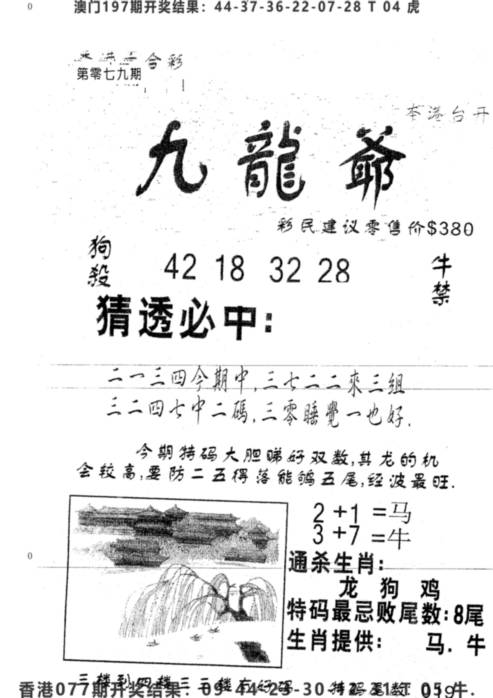 澳门197期开奖结果：44-37-36-22-07-28 T 04 虎
0
合彩
第零七九期
本港台开
九龍爺
彩民建议零售价$380
狗殺
42 18 32 28
牛禁
猜透必中：
二一三四今期中,三七二二來三组
三二四七中二碼,三零睡覺一也好.
今期特码大胆睇好双数,其龙的机
会较高,要防二五得落能够五尾,经波最旺.
2+1=马
3+7=牛
0
通杀生肖：
龙 狗 鸡
特码最忌败尾数：8尾
生肖提供： 马．牛
香港077期开奖结果：09-44-23-30-
T 05 牛.